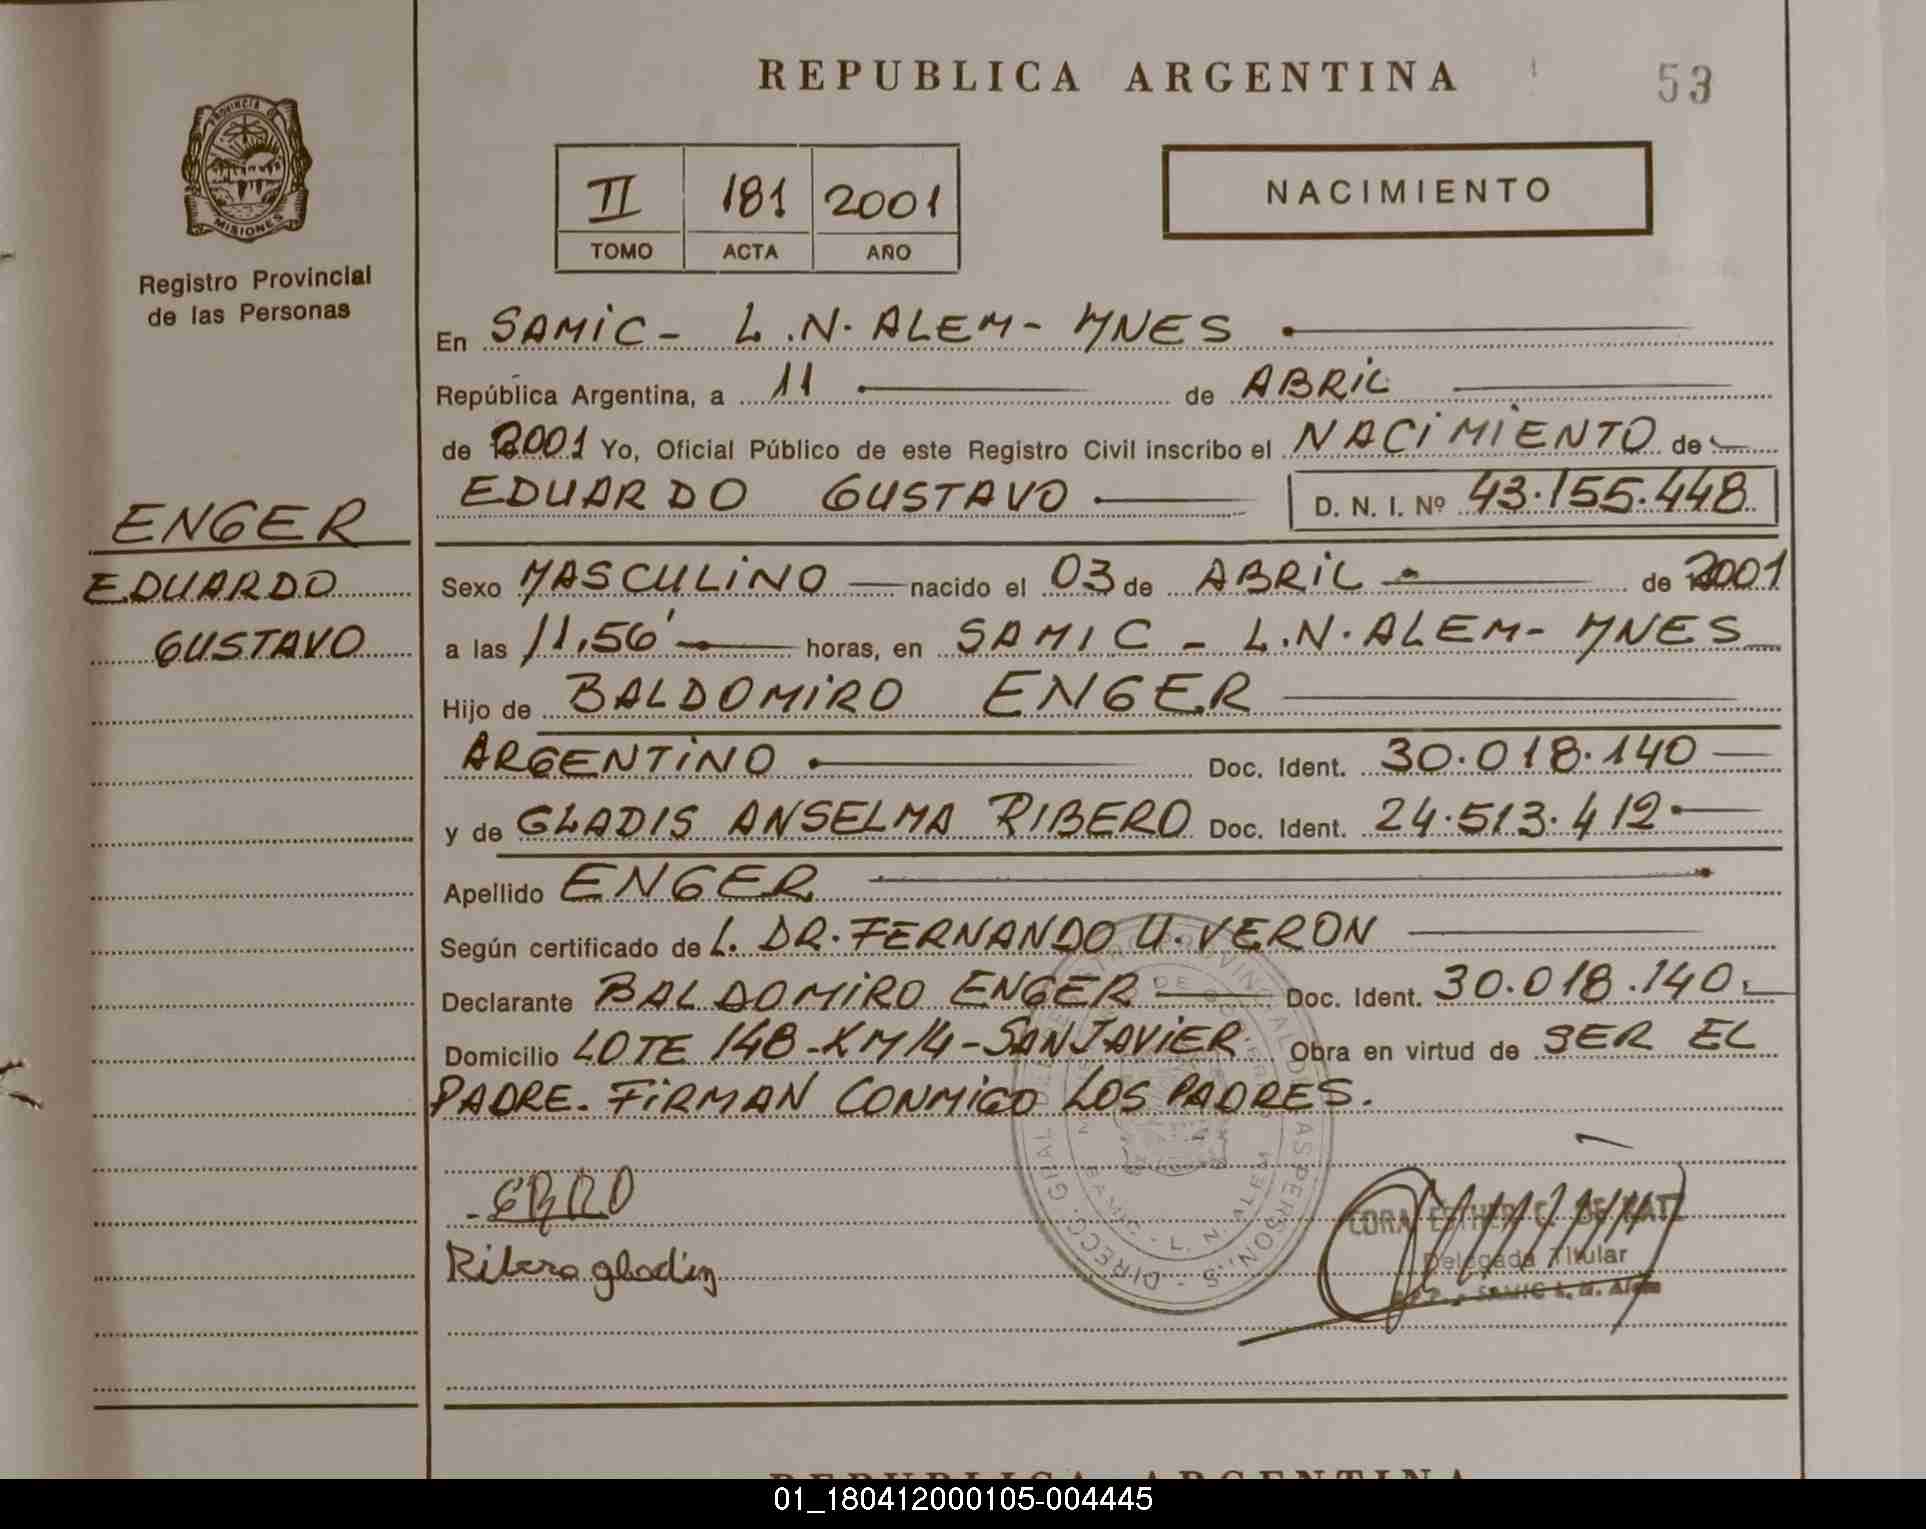 REPUBLICA ARGENTINA
53
PROVINCIA DE
MISIONES
Registro Provincial
de las Personas
II 181 2001
TOMO ACTA AÑO
NACIMIENTO
En SAMIC - L.N. ALEM - MNES
República Argentina, a 11 de ABRIL
de 2001 Yo, Oficial Público de este Registro Civil inscribo el NACIMIENTO de
EDUARDO GUSTAVO D. N. I. Nº 43.155.448
ENGER
EDUARDO
GUSTAVO
Sexo MASCULINO nacido el 03 de ABRIL de 2001
a las 11,56' horas, en SAMIC - L.N. ALEM - MNES
Hijo de BALDOMIRO ENGER
ARGENTINO Doc. Ident. 30.018.140
y de GLADIS ANSELMA RIBERO Doc. Ident. 24.513.412
Apellido ENGER
Según certificado de L. DR. FERNANDO U. VERON
Declarante BALDOMIRO ENGER Doc. Ident. 30.018.140
Domicilio LOTE 148 - KM 14 - SAN JAVIER Obra en virtud de SER EL
PADRE. FIRMAN CONMIGO LOS PADRES.
Ribero gladis
CORA ESTHER C. DE
Delegada Titular
SAMIC L. N. Alem
SAMIC - L. N. ALEM
REPUBLICA ARGENTINA
01_180412000105-004445